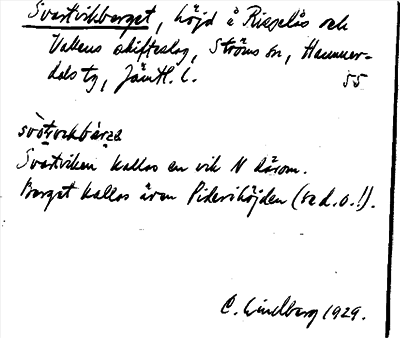 Svartviksberget, höjd å Risselås och
Vallens skifteslag, Ströms sn, Hammer-
dals tg, Jämtl. l. 55
Svartviken kallas en vik N därom.
Berget kallas även Piderihöjden (se d. o.!).
C. Lindberg 1929.